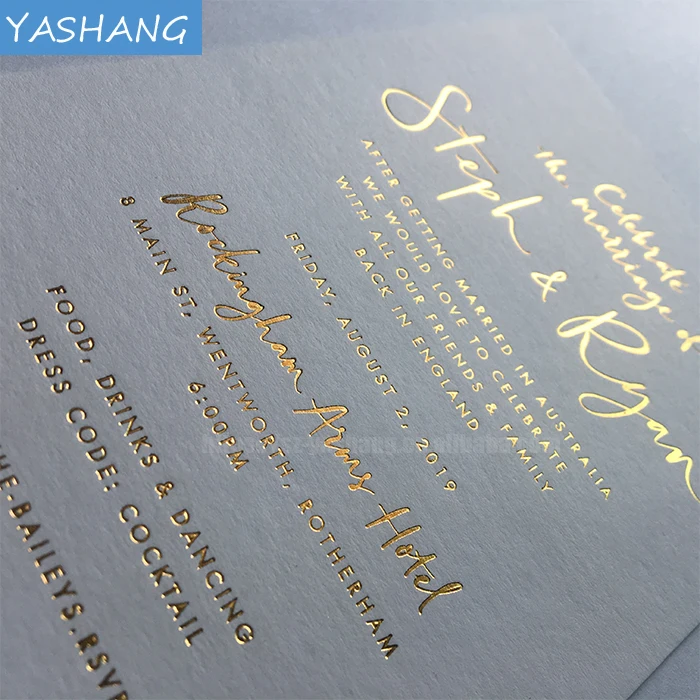 YASHANG
Celebrate
the marriage of
Steph & Ryan
AFTER GETTING MARRIED IN AUSTRALIA
WE WOULD LOVE TO CELEBRATE
WITH ALL OUR FRIENDS & FAMILY
BACK IN ENGLAND
FRIDAY, AUGUST 2, 2019
Rockingham Arms Hotel
8 MAIN ST, WENTWORTH, ROTHERHAM
6:00PM
FOOD, DRINKS & DANCING
DRESS CODE: COCKTAIL